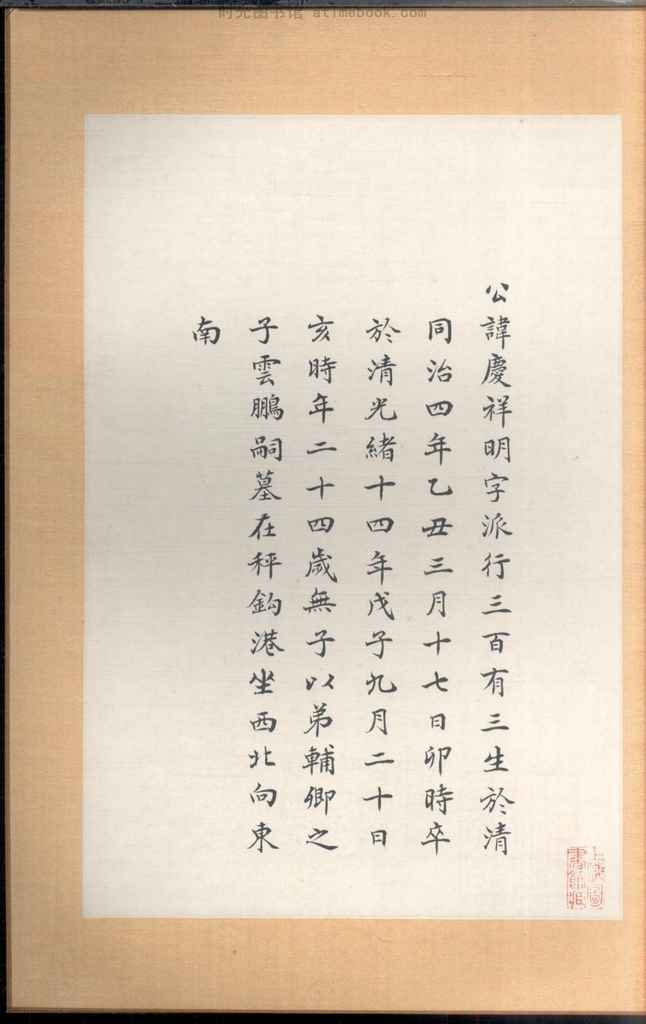 时光图书馆 atimebook.com
公諱慶祥明字派行三百有三生於清
同治四年乙丑三月十七日卯時卒
於清光緒十四年戊子九月二十日
亥時年二十四歲無子以弟輔卿之
子雲鵬嗣墓在秤鈎港坐西北向東
南
上海圖
書館藏